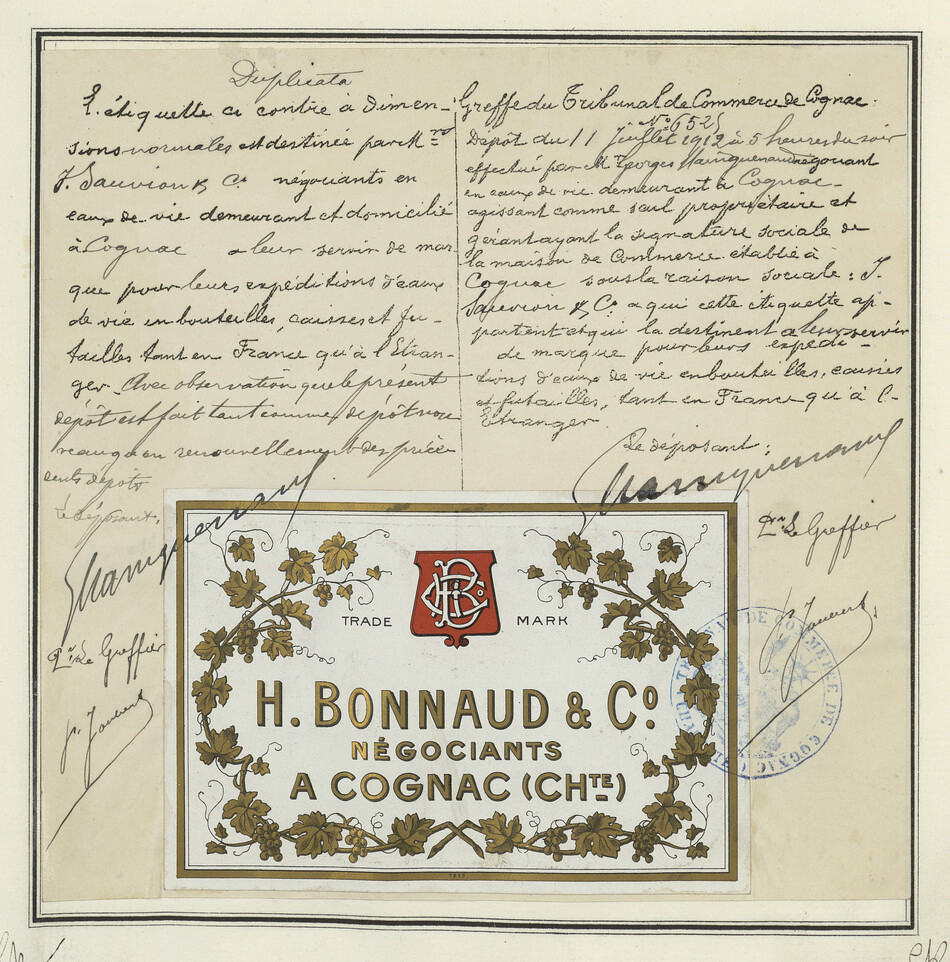 Duplicata
L'étiquette ci contre à dimen-
sions normales est destinée par Mrs
J. Sauvion & Co négociants en
eaux de vie demeurant et domicilié
à Cognac a leur servir de mar
que pour leurs expéditions d'eaux
de vie en bouteilles, caisses et fu-
tailles tant en France qu'à l'Etran-
ger. Avec observation que le présent
dépôt est fait tant comme dépôt nou
veau qu'en renouvellement des précé-
dents dépôts
Le déposant,
Pr. Le Greffier
Greffe du Tribunal de Commerce de Cognac.
No 6525
Dépôt du 11 Juillet 1912 à 5 heures du soir
effectué par M. Georges négociant
en eaux de vie demeurant à Cognac-
agissant comme seul propriétaire et
gérant ayant la signature sociale de
la maison de Commerce établie à
Cognac sous la raison sociale : J.
Sauvion & Co a qui cette étiquette ap-
partient et qui la destinent a leur servir
de marque pour leurs expédi-
tions d'eaux de vie en bouteilles, caisses
et futailles, tant en France qu'à l'-
Etranger.
Le déposant :
Pr. Le Greffier
TRADE MARK
H. BONNAUD & Co
NÉGOCIANTS
A COGNAC (CHTE)
TRIBUNAL DE COMMERCE DE COGNAC